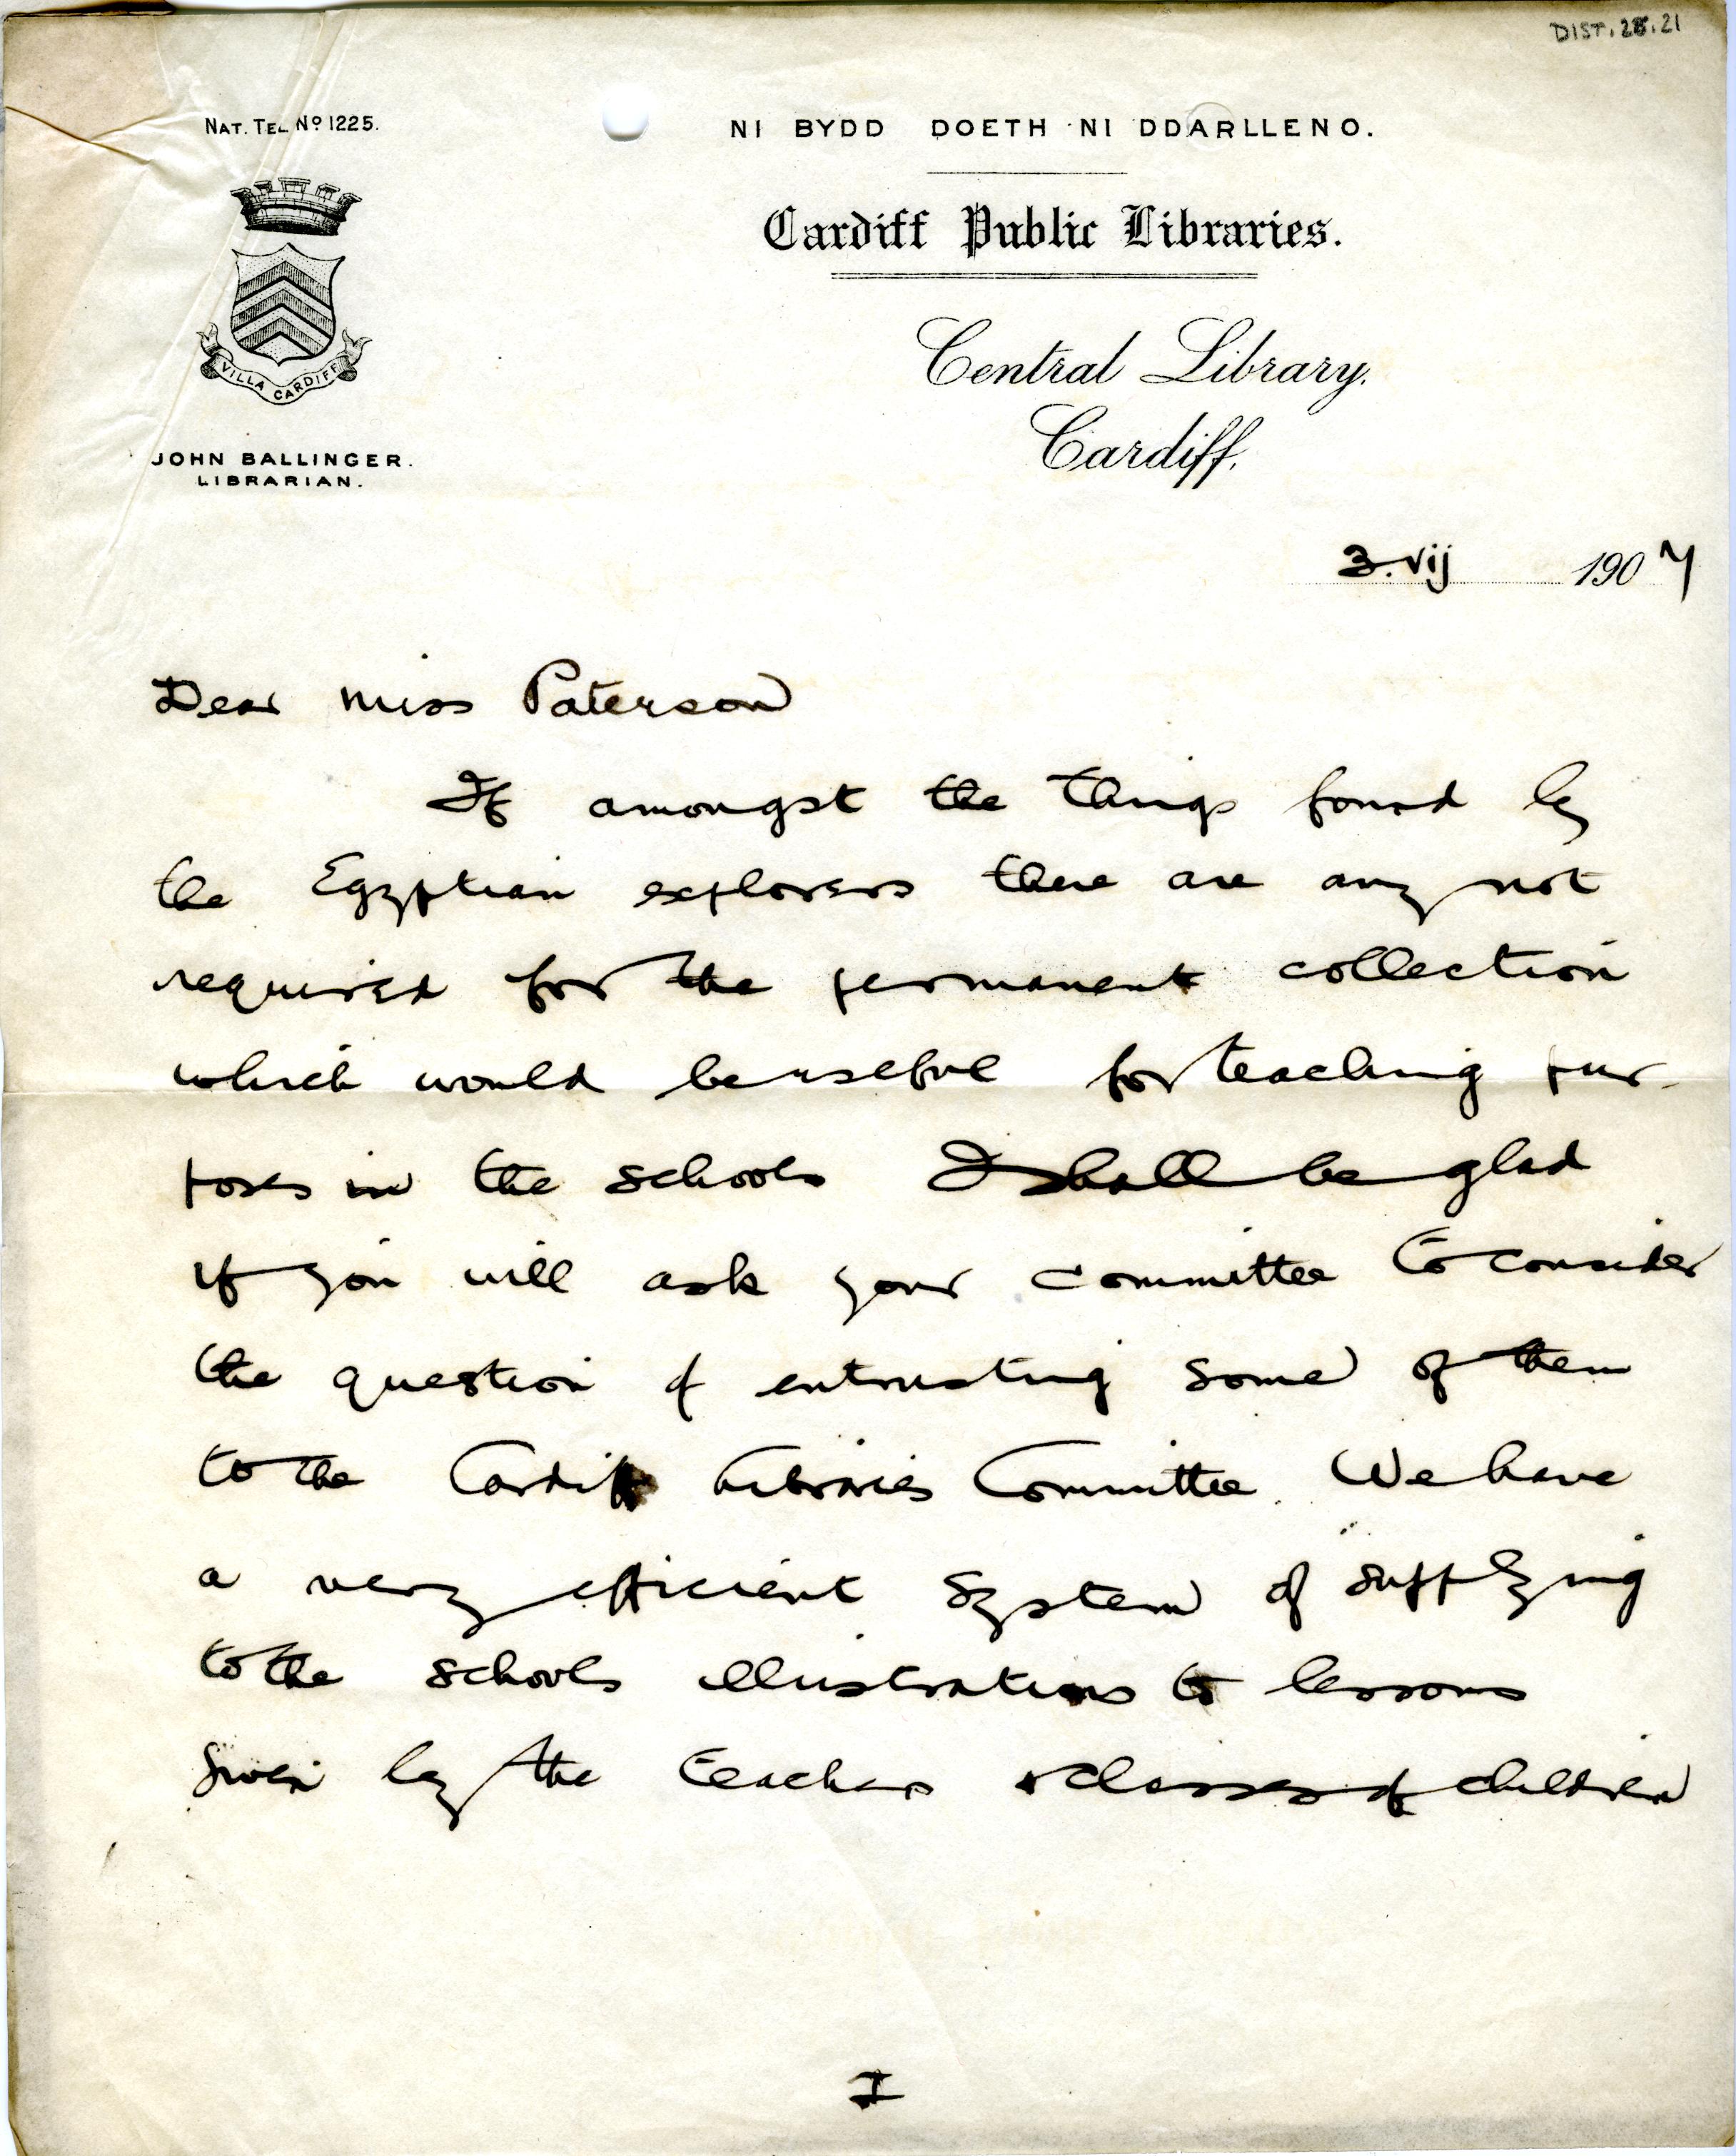 DIST.28.21
NAT. TEL. Nº 1225.
NI BYDD DOETH NI DDARLLENO.
Cardiff Public Libraries.
Central Library,
Cardiff.
VILLA CARDIFF
JOHN BALLINGER.
LIBRARIAN.
3.vij 1907
Dear Miss Paterson
If amongst the things found by
the Egyptian explorers there are any not
required for the permanent collection
which would be useful for teaching pur-
poses in the schools I shall be glad
if you will ask your committee to consider
the question of entrusting some of them
to the Cardiff Libraries Committee. We have
a very efficient system of supplying
to the schools illustrations to lessons
given by the teachers & classes of children
I